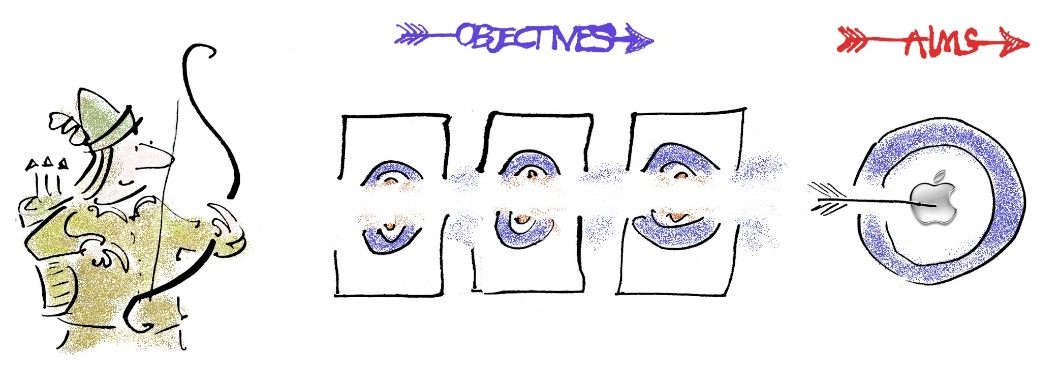 OBJECTIVES
AIMS